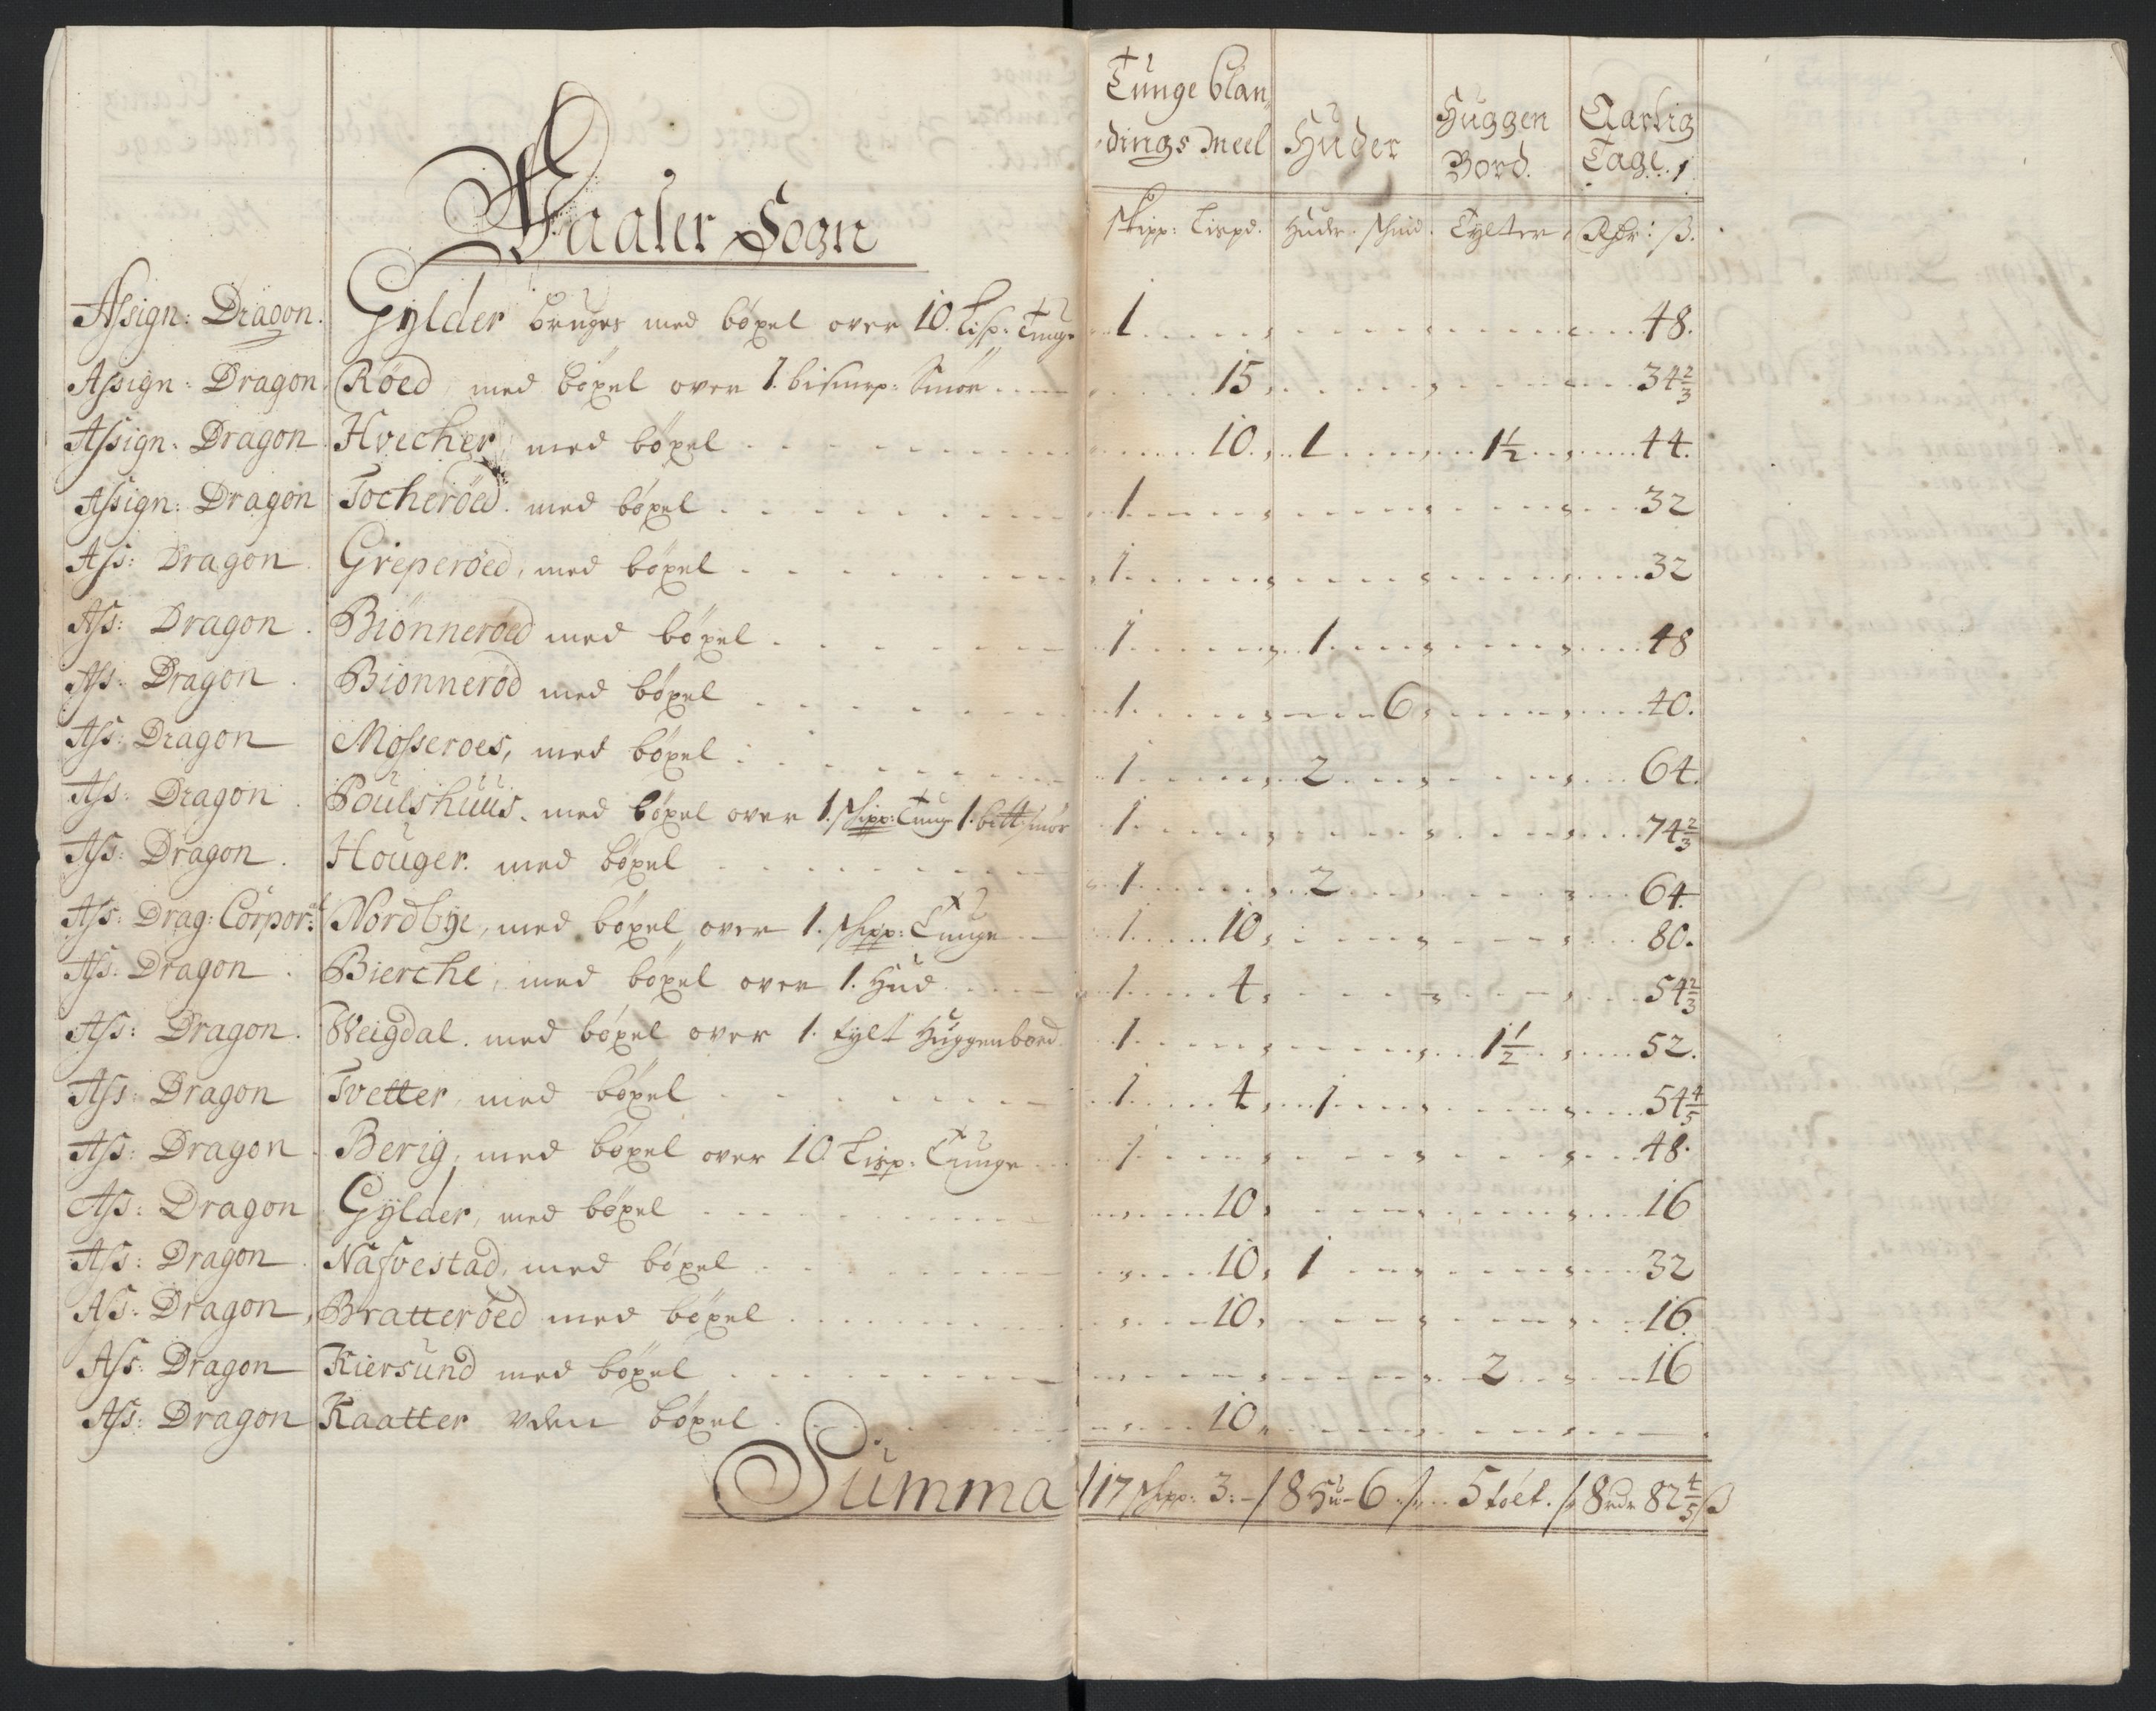 Tunge blan
dings Meel Huder Huggen Bord. Aarlig Tage. 1
Waaler Sogn
skipp: Lispd. Huder. skind. Tylter Rdr: ß.
Assign: Dragon. Gylder bruges med böxel over 10. Lisp: Tunge 1 48.
Assign: Dragon. Röed med böxel over 1. bismrp: Smör 15 34 2/3
Assign: Dragon Hvecher, med böxel 10. 1 1 1/2 44.
Assign: Dragon Tocheröed. med böxel 1 32
Ass: Dragon Greperöed, med böxel 1 32
Ass: Dragon. Biönneröed med böxel 1 1 48
Ass: Dragon. Biönneröd med böxel 1 6 40.
Ass: Dragon Mosseroes, med böxel 1 2 64.
Ass: Dragon Poulshuus. med böxel over 1. skipp: Tunge 1. bitt smör 1 74 2/3
Ass: Dragon. Houger. med böxel 1 2 64.
Ass: Drag: Corpor: Nordbye, med böxel over 1. skipp: Tunge 1 10 80.
Ass: Dragon. Bierche, med böxel over 1. Hud 1 4 54 2/3
Ass: Dragon. Weigdal. med böxel over 1. tylt Huggenbord 1 1 1/2 52.
Ass: Dragon Tvetter, med böxel 1 4 1 54 4/5
Ass: Dragon Berig, med böxel over 10 Lisp: Tunge 1 48.
Ass: Dragon Gylder, med böxel 10 16
Ass: Dragon Nafvestad, med böxel 10 1 32
Ass: Dragon, Bratteröed med böxel 10 16
Ass: Dragon Kiersund med böxel 2 16
Ass: Dragon Kaatter uden böxel 10
Summa 17 skipp: 3: 8 Hu 6 5 tölt. 8 rdr 82 4/5 ß